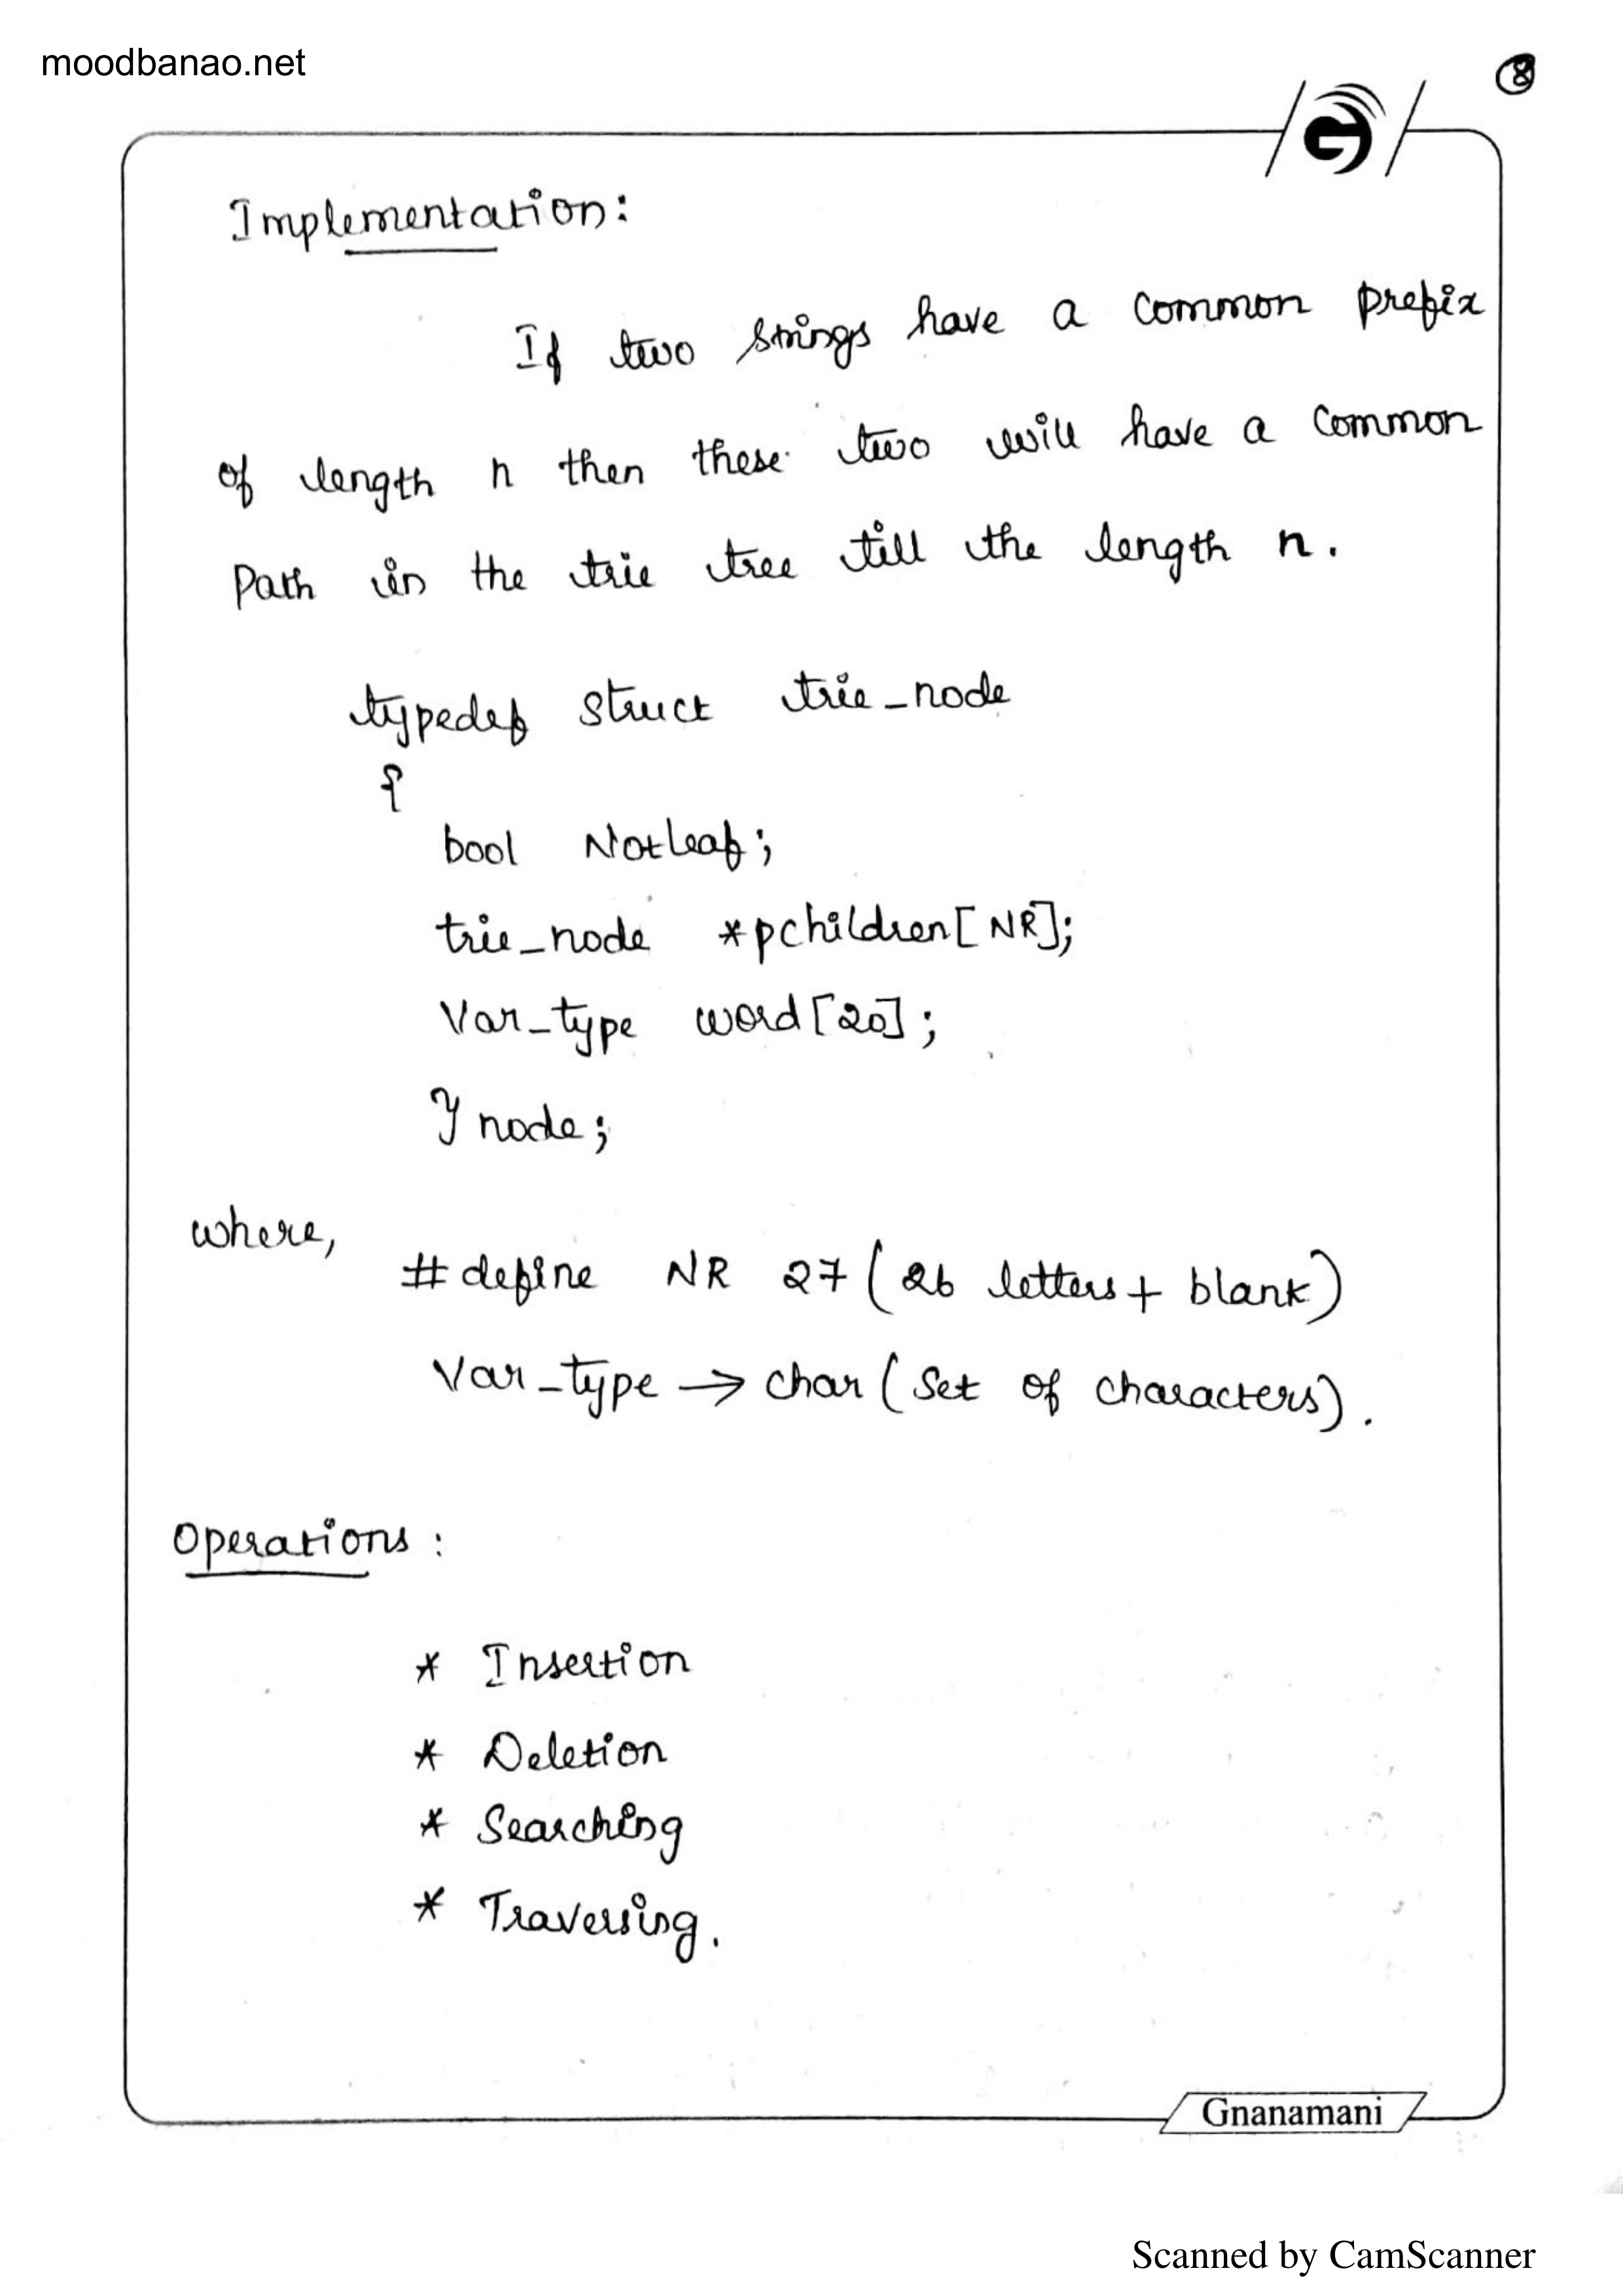 moodbanao.net
8
Implementation:
If two strings have a common prefix
of length n then these two will have a common
Path in the trie tree till the length n.
typedef struct trie_node
{
bool NotLeaf;
trie_node *pchildren[NR];
Var_type word[20];
} node;
where,
#define NR 27 (26 letters + blank)
Var_type → char (set of characters).
Operations:
* Insertion
* Deletion
* Searching
* Traversing.
Gnanamani
Scanned by CamScanner